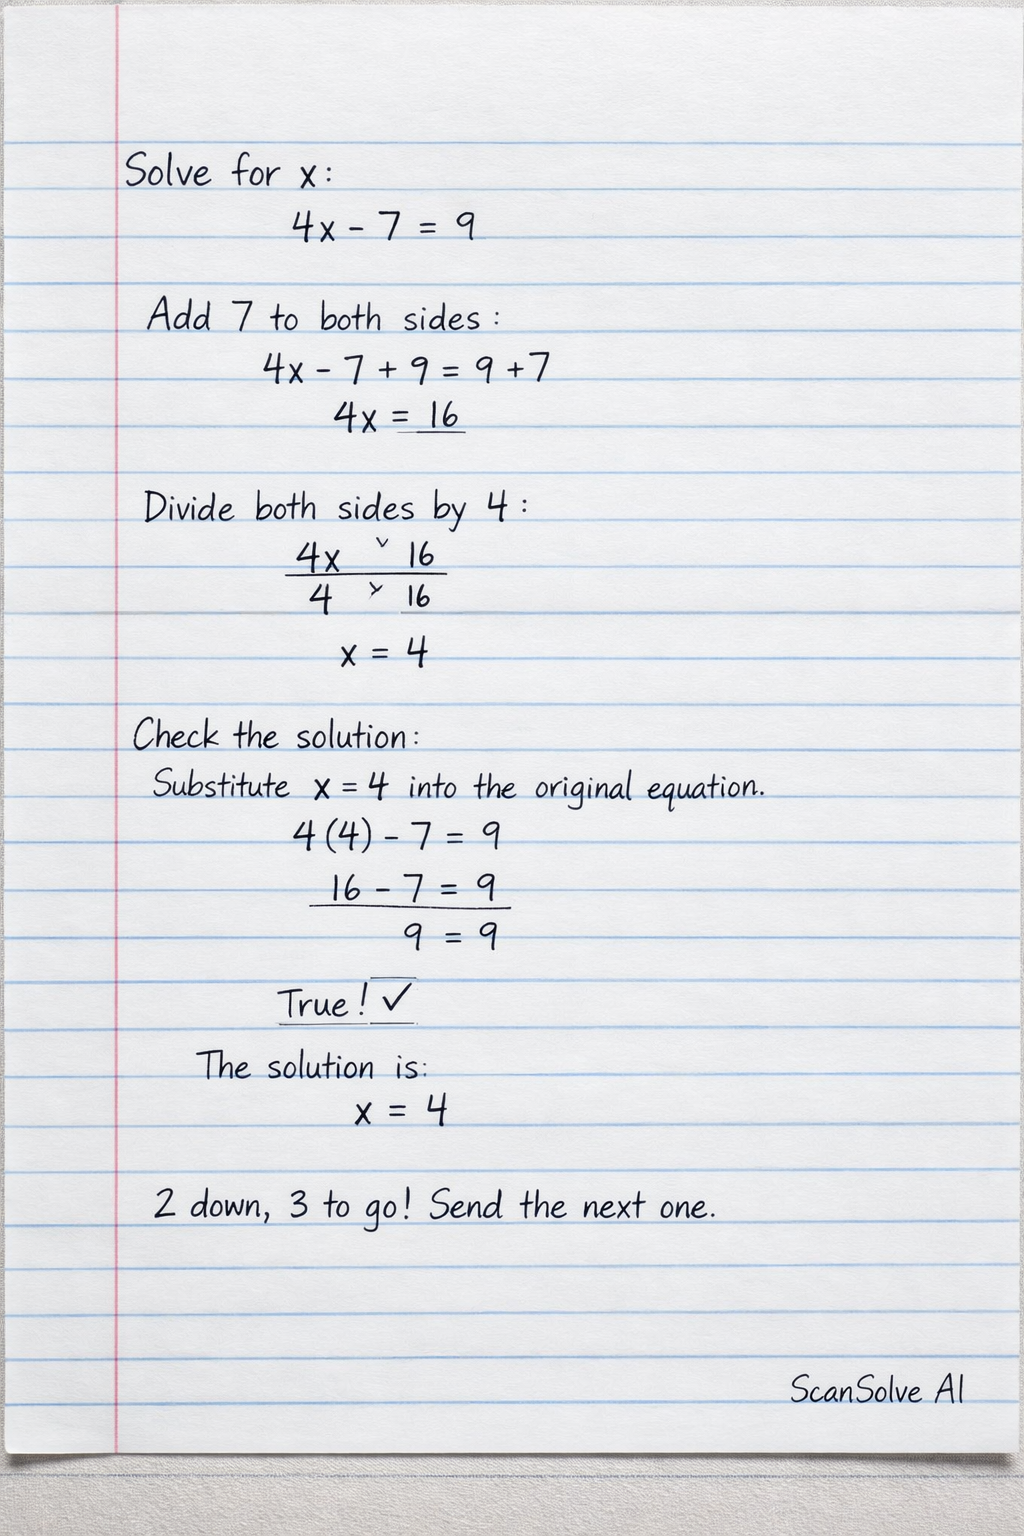 Solve for x:
4x - 7 = 9
Add 7 to both sides:
4x - 7 + 9 = 9 + 7
4x = 16
Divide both sides by 4:
4x ˅ 16
4 ˅ 16
x = 4
Check the solution:
Substitute x = 4 into the original equation.
4(4) - 7 = 9
16 - 7 = 9
9 = 9
True! ✓
The solution is:
x = 4
2 down, 3 to go! Send the next one.
ScanSolve AI